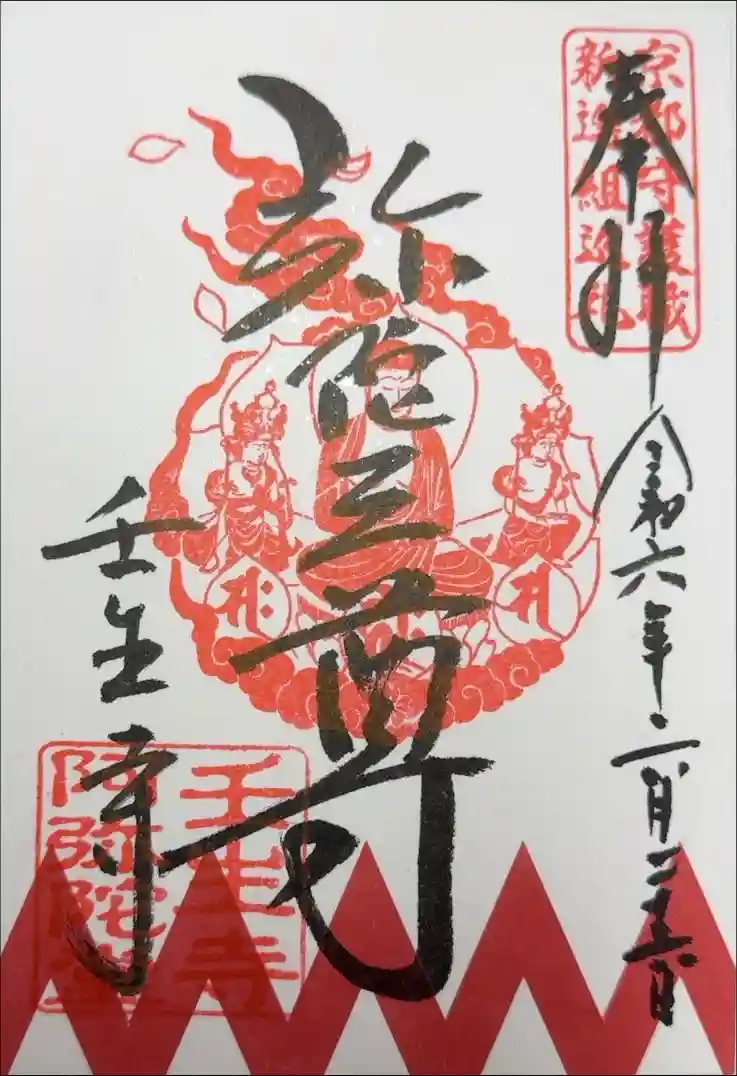 京都守護職
新選組巡礼
奉拝
令和六年二月二十六日
弥陀三尊
壬生寺
壬生寺
阿弥陀堂